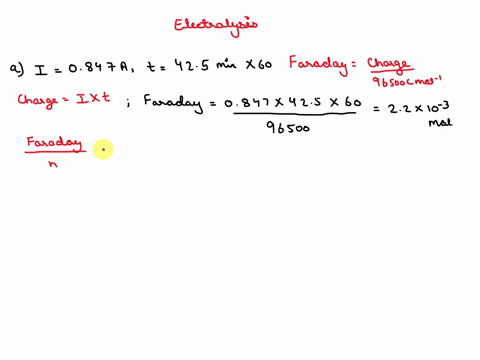 Electralysis
a) I = 0.847A, t = 42.5 min X60 Faraday = Charge / 96500 C mol⁻¹
Charge = I x t ; Faraday = 0.847 X 42.5 X 60 / 96500 = 2.2 X 10⁻³ mol
Faraday / n